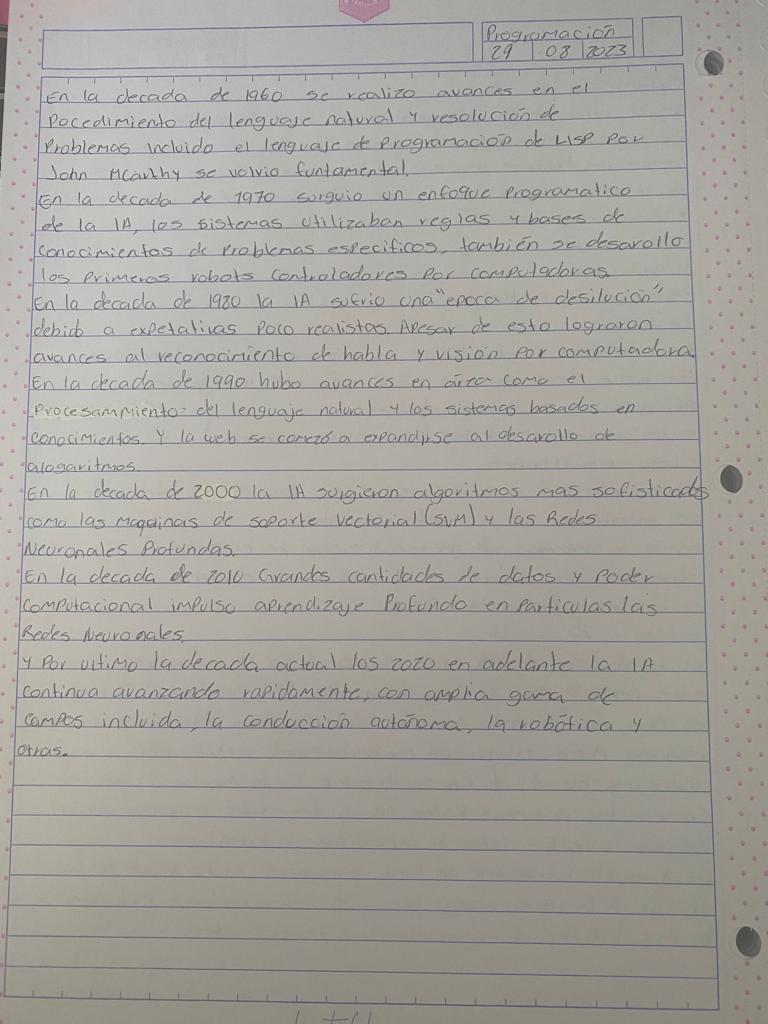 Programación
29 08 2023
En la decada de 1960 se realizo avances en el
Pocedimiento del lenguaje natural y resolución de
Problemas incluido el lenguaje de Programación de LISP Por
John Mcarthy se volvio funtamental.
En la decada de 1970 surguio un enfoque Programatico
de la IA, los sistemas utilizaban reglas y bases de
conocimientos de Problemas especificos, también se desarollo
los Primeros robots controladores Por computadoras
En la decada de 1980 la IA sufrio una "epoca de desilución"
debido a expetativas Poco realistas. Apesar de esto lograron
avances al reconocimiento de habla y visión Por computadora.
En la decada de 1990 hubo avances en área como el
Procesammiento del lenguaje natural y los sistemas basados en
conocimientos. Y la web se comezó a expandirse al desarollo de
alogaritmos.
En la decada de 2000 la IA surgieron algoritmos mas sofisticados
como las maquinas de soporte vectorial (SVM) y las Redes
Neuronales Profundas.
En la decada de 2010 Grandes cantidades de datos y Poder
computacional impulso aprendizaje Profundo en Particulas las
Redes Neuronales.
Y Por ultimo la decada actual los 2020 en adelante la IA
continua avanzando rapidamente, con amplia gama de
campos incluida, la conducción autónoma, la robótica y
otras.